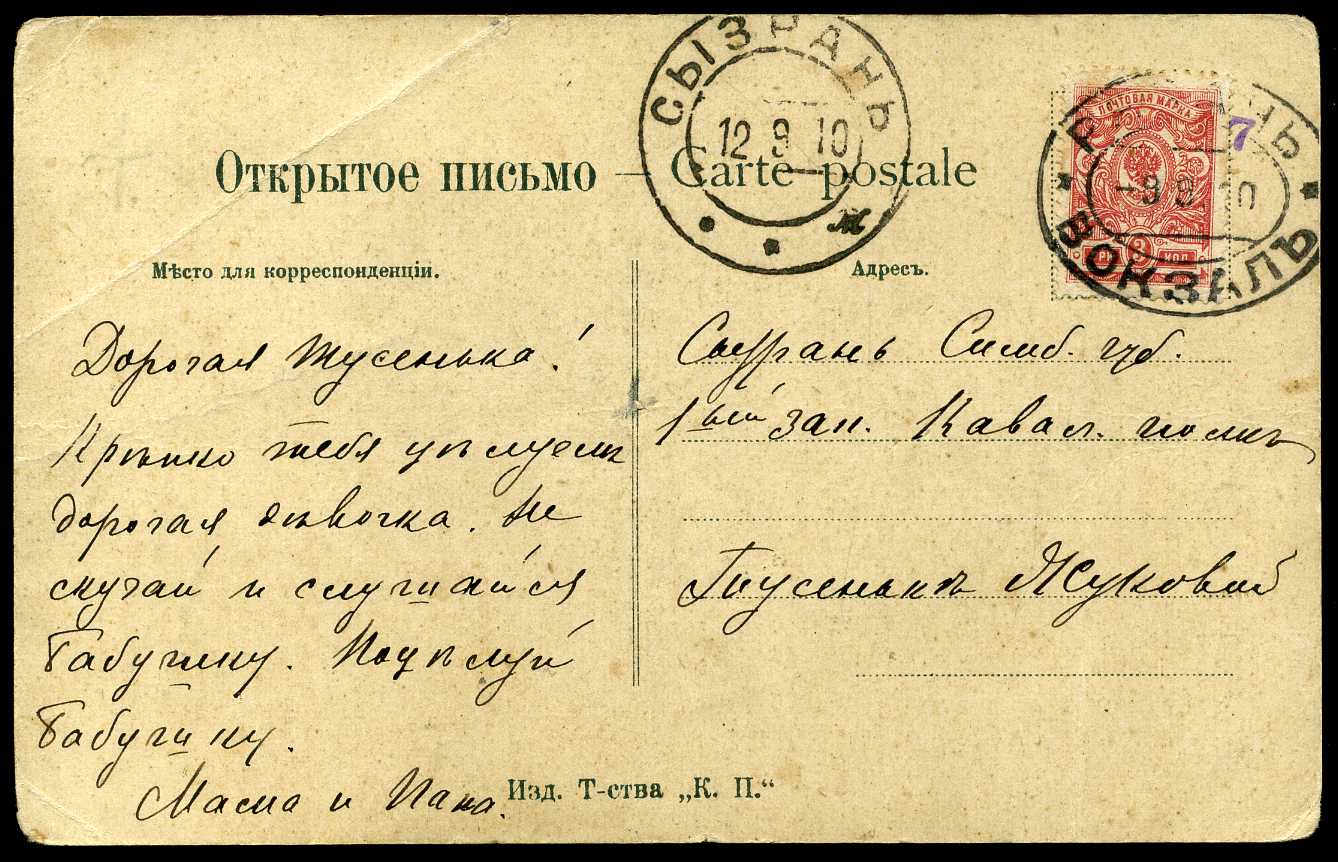 СЫЗРАНЬ
12 9 10
ПОЧТОВАЯ МАРКА
7
-9 9 10
ВОКЗАЛЪ
3
КОП
Открытое письмо — Carte postale
Мѣсто для корреспонденціи.
Адресъ.
Дорогая Тусенька!
Крѣпко тебя цѣлуемъ
дорогая дѣвочка. Не
скучай и слушайся
бабушку. Поцѣлуй
бабушку.
Мама и Папа.
Сызрань Симб. губ.
1ый зап. Кавал. полкъ
Тусенькѣ Жуковой
Изд. Т-ства „К. П.“